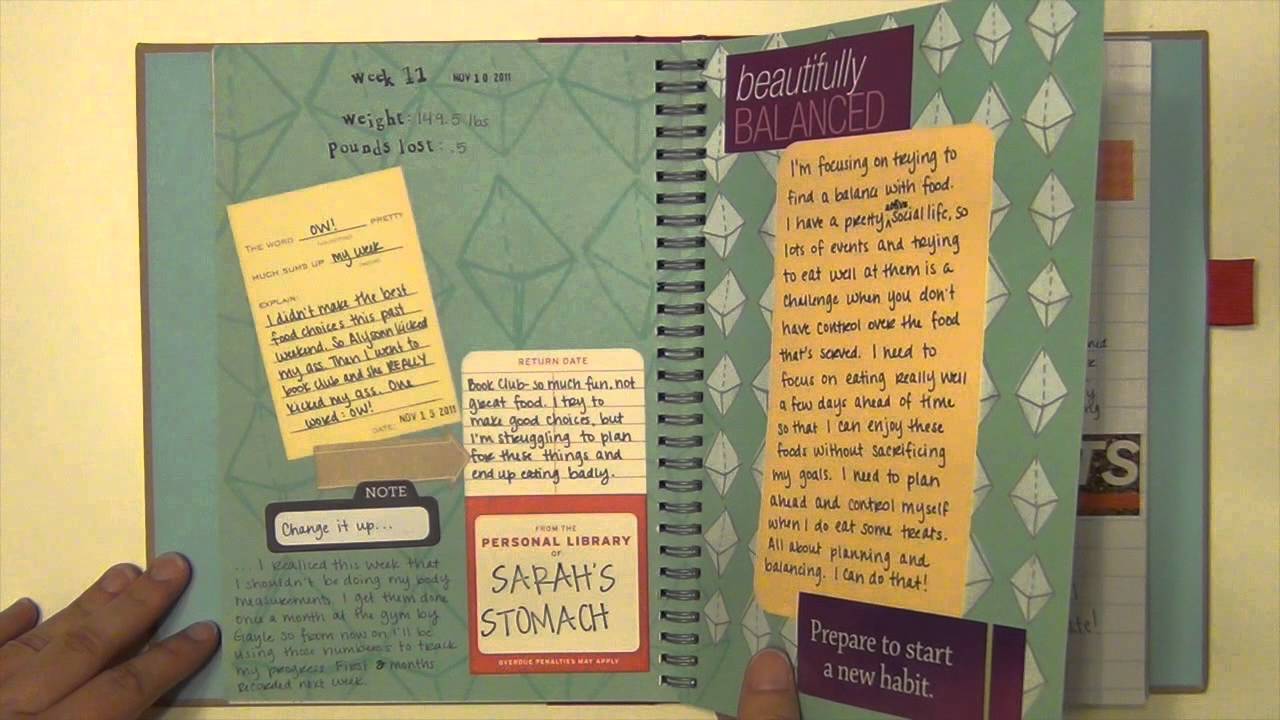 week 11 NOV 10 2011
weight: 149.5 lbs
Pounds lost: .5
THE WORD OW! PRETTY
MUCH SUMS UP my week
EXPLAIN:
I didn't make the best
food choices this past
weekend. So Alysonn kicked
my ass. Then I went to
book club and she REALLY
kicked my ass. One
word: OW!
DATE: NOV 15 2011
RETURN DATE
Book Club- so much fun, not
great food. I try to
make good choices, but
I'm struggling to plan
for these things and
end up eating badly.
NOTE
Change it up...
FROM THE
PERSONAL LIBRARY
OF
SARAH'S
STOMACH
OVERDUE PENALTIES MAY APPLY
... I realized this week that
I shouldn't be doing my body
measurements. I get them done
once a month at the gym by
Gayle so from now on, I'll be
using those numbers to track
my progress. First 2 months
recorded next week.
beautifully
BALANCED
I'm focusing on trying to
find a balance with food.
I have a pretty active social life, so
lots of events and trying
to eat well at them is a
challenge when you don't
have control over the food
that's served. I need to
focus on eating really well
a few days ahead of time
so that I can enjoy these
foods without sacrificing
my goals. I need to plan
ahead and control myself
when I do eat some treats.
All about planning and
balancing. I can do that!
Prepare to start
a new habit.
TS